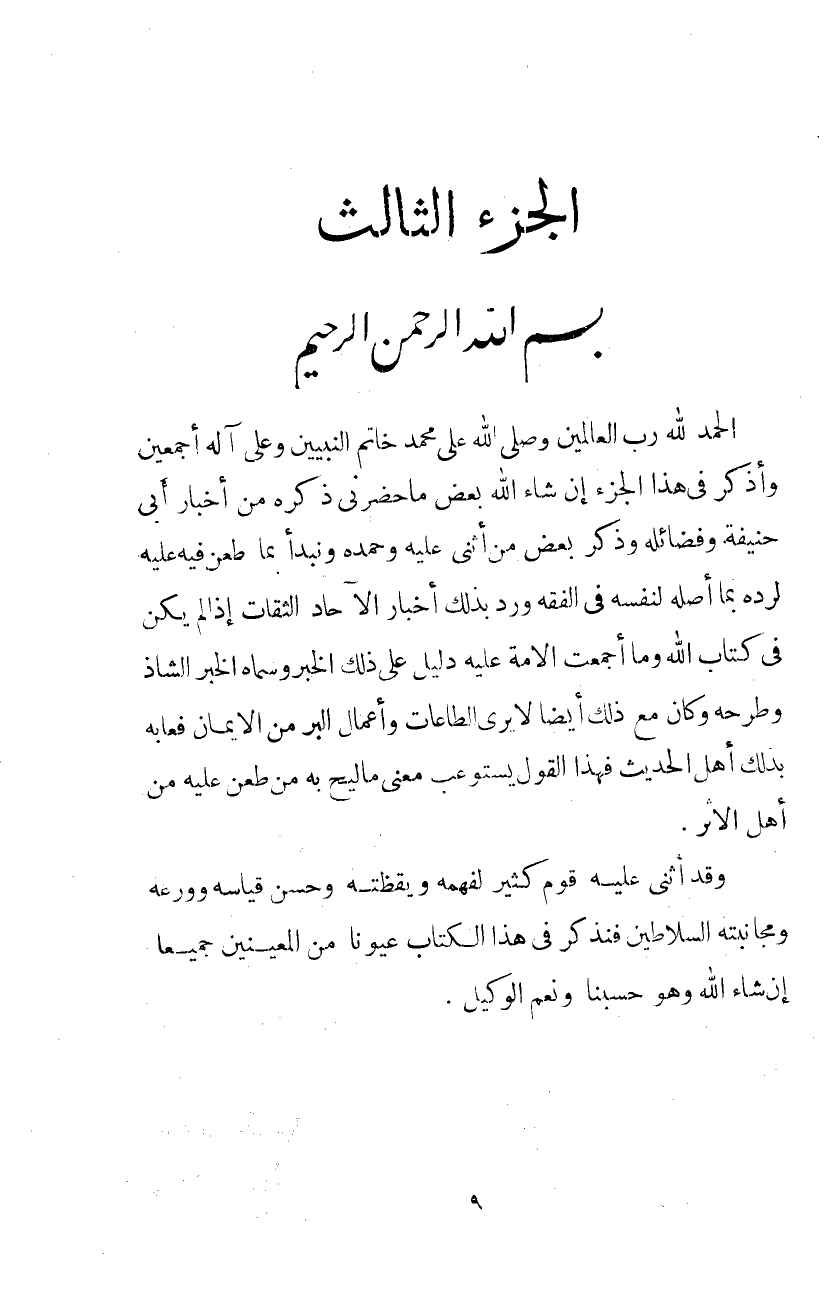 الجزء الثالث
بسم الله الرحمن الرحيم
الحمد لله رب العالمين وصلى الله على محمد خاتم النبيين وعلى آله أجمعين
وأذكر فى هذا الجزء إن شاء الله بعض ماحضرنى ذكره من أخبار أبى
حنيفة وفضائله وذكر بعض من أثنى عليه وحمده ونبدأ بما طعن فيه عليه
لرده بما أصله لنفسه فى الفقه ورد بذلك أخبار الآحاد الثقات إذالم يكن
فى كتاب الله وما أجمعت الامة عليه دليل على ذلك الخبر وسماه الخبر الشاذ
وطرحه وكان مع ذلك أيضا لايرى الطاعات وأعمال البر من الايمان فعابه
بذلك أهل الحديث فهذا القول يستوعب معنى ماليح به من طعن عليه من
أهل الاثر .
وقد أثنى عليه قوم كثير لفهمه ويقظته وحسن قياسه وورعه
ومجانبته السلاطين فنذكر فى هذا الكتاب عيونا من المعينين جميعا
إن شاء الله وهو حسبنا ونعم الوكيل .
٩